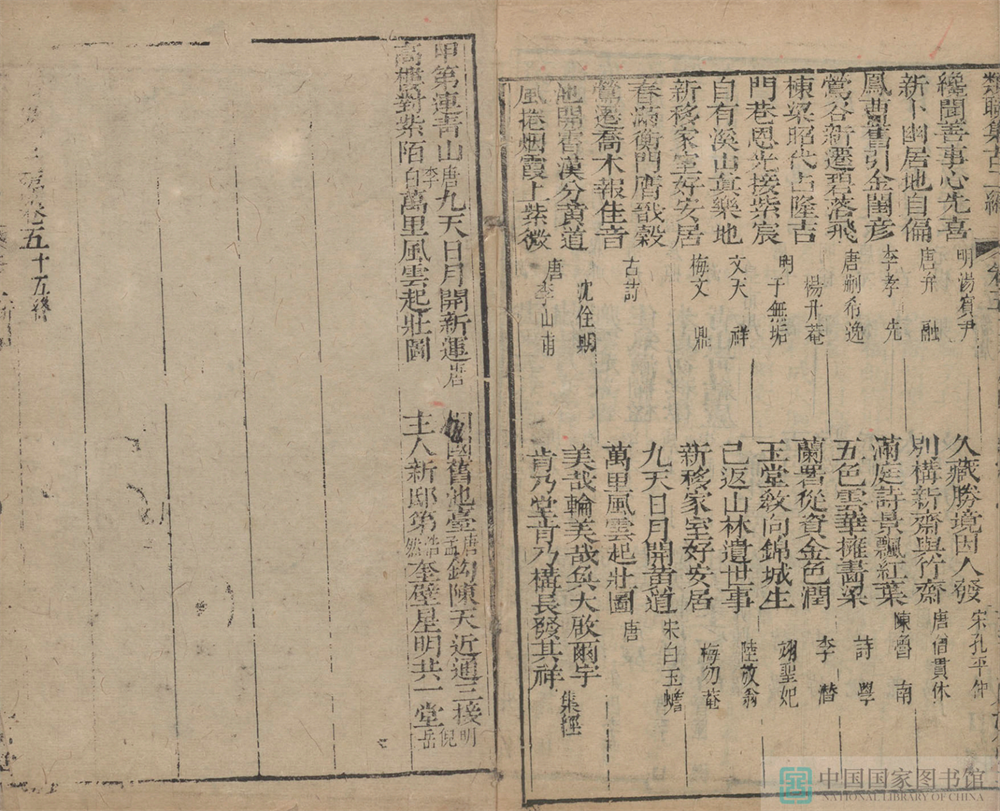 類聯集古二編
繼聞善事心先喜 明湯賓尹 久藏勝境因人發 宋孔平仲
新卜幽居地自偏 唐弁融 別構新齋與竹齋 唐僧貫休
鳳曹舊引金閨彥 李孝先 滿庭詩景飄紅葉 陳魯南
鶯谷新遷碧落飛 唐剃希逸 五色雲華擁畵梁 詩學
棟梁昭代占隆吉 楊升菴 蘭署從資金色潤 李潛
門巷恩光接紫宸 明于無垢 玉堂敘向錦城生 翊聖妃
自有溪山眞樂地 文天祥 已返山林遺世事 陸放翁
新移家室好安居 梅文鼎 新移家室好安居 梅勿菴
春滿衡門膺戩穀 古詩 九天日月開黃道 朱白玉蟾
鶯遷喬木報佳音 萬里風雲起壯圖 唐
池開霄漢分黃道 沈佺期 美哉輪美哉奐大啟爾宇
風捲烟霞上紫微 唐李山甫 肯乃堂肯乃構長發其祥 集經
甲第連青山 唐李 九天日月開新運 唐 國舊池臺 唐孟 鈎陳天近通三接 明倪
高樓對紫陌 白 萬里風雲起壯圖 主人新邸第 浩然 奎壁星明共一堂 岳
卷五十五終
中国国家图书馆
NATIONAL LIBRARY OF CHINA